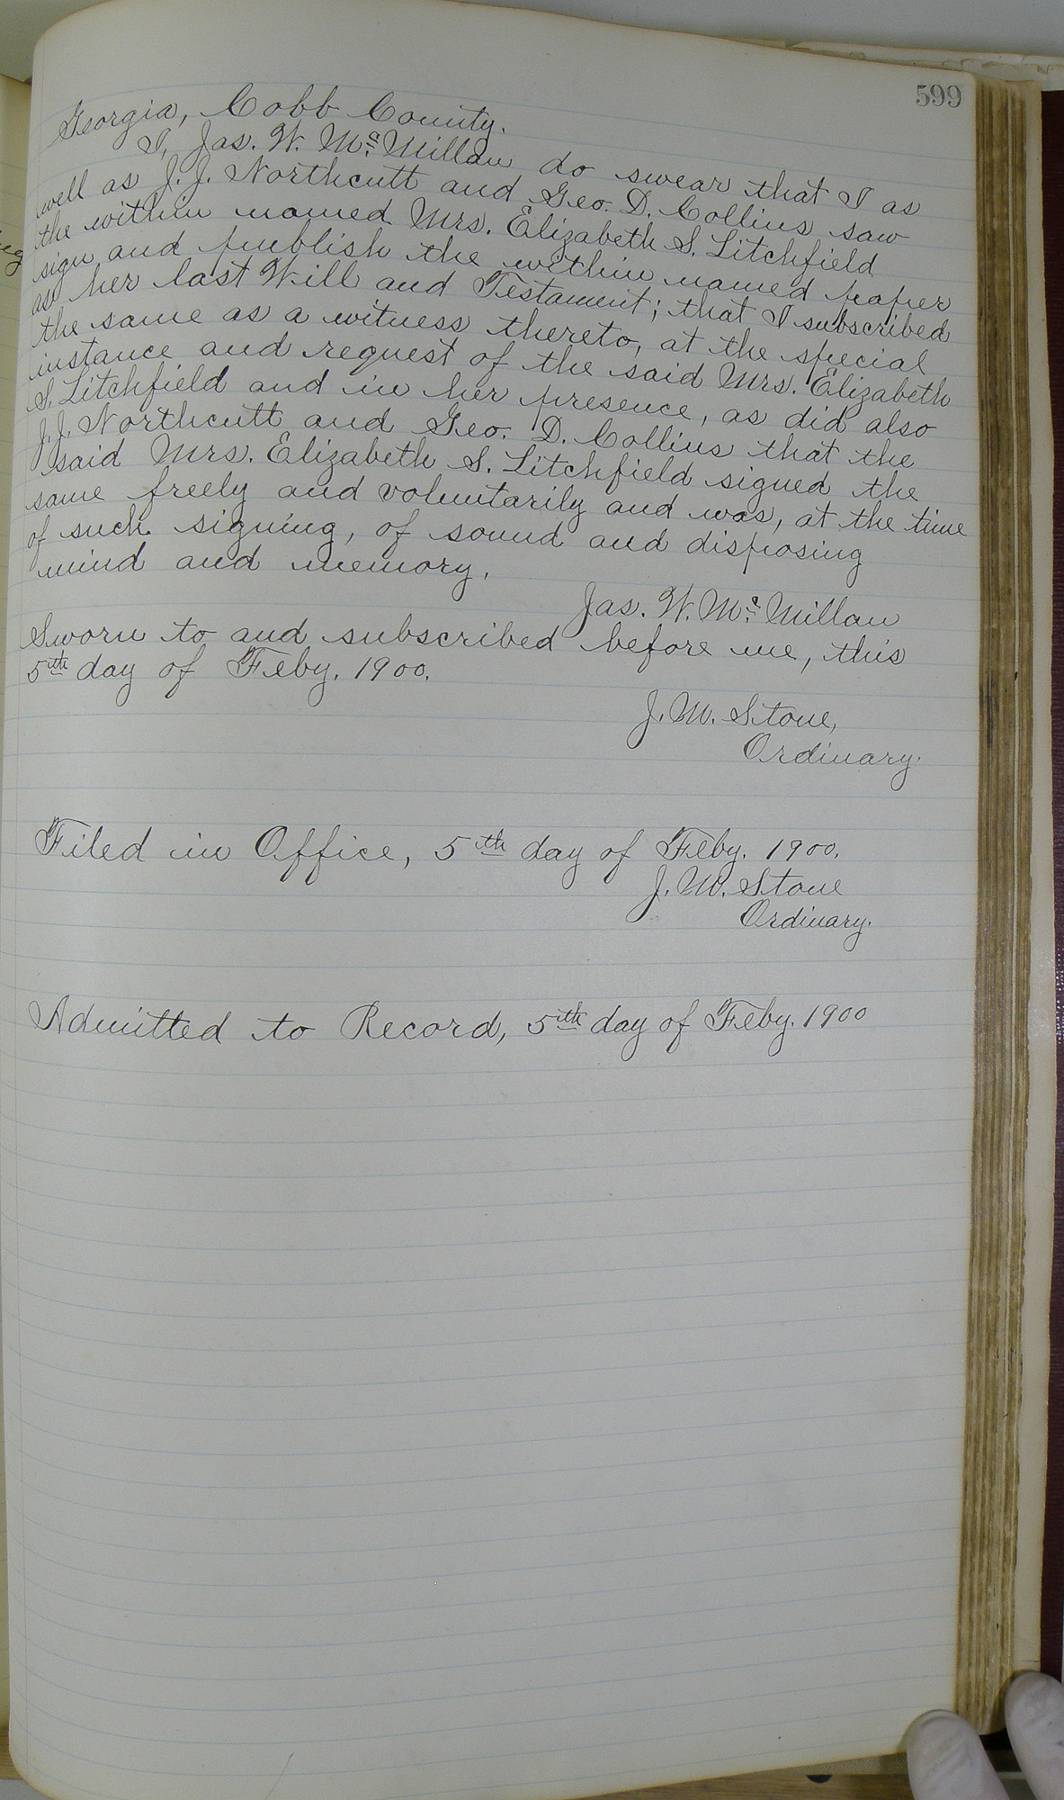 599
Georgia, Cobb County.
I, Jas. W. McMillan do swear that I as
well as J. J. Northcutt and Geo. D. Collins saw
the within named Mrs. Elizabeth S. Litchfield
sign and publish the within named paper
as her last Will and Testament; that I subscribed
the same as a witness thereto, at the special
instance and request of the said Mrs. Elizabeth
S. Litchfield and in her presence, as did also
J. J. Northcutt and Geo. D. Collins that the
said Mrs. Elizabeth S. Litchfield signed the
same freely and voluntarily and was, at the time
of such signing, of sound and disposing
mind and memory.
Jas. W. McMillan
Sworn to and subscribed before me, this
5th day of Feby. 1900.
J. M. Stone,
Ordinary.
Filed in Office, 5th day of Feby. 1900.
J. M. Stone
Ordinary.
Admitted to Record, 5th day of Feby. 1900